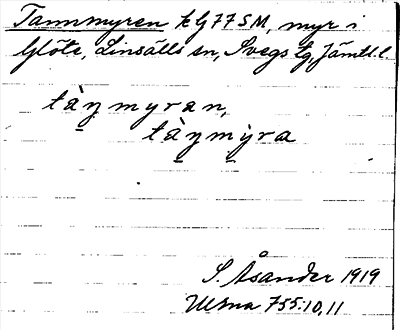 Tannmyren tG77SM, myr i
Glöte, Linsälls sn, Svegs tg, Jämtl. l.
tàn̥myran,
tàn̥mỳra
S. Åsander 1919
ULma 755:10,11